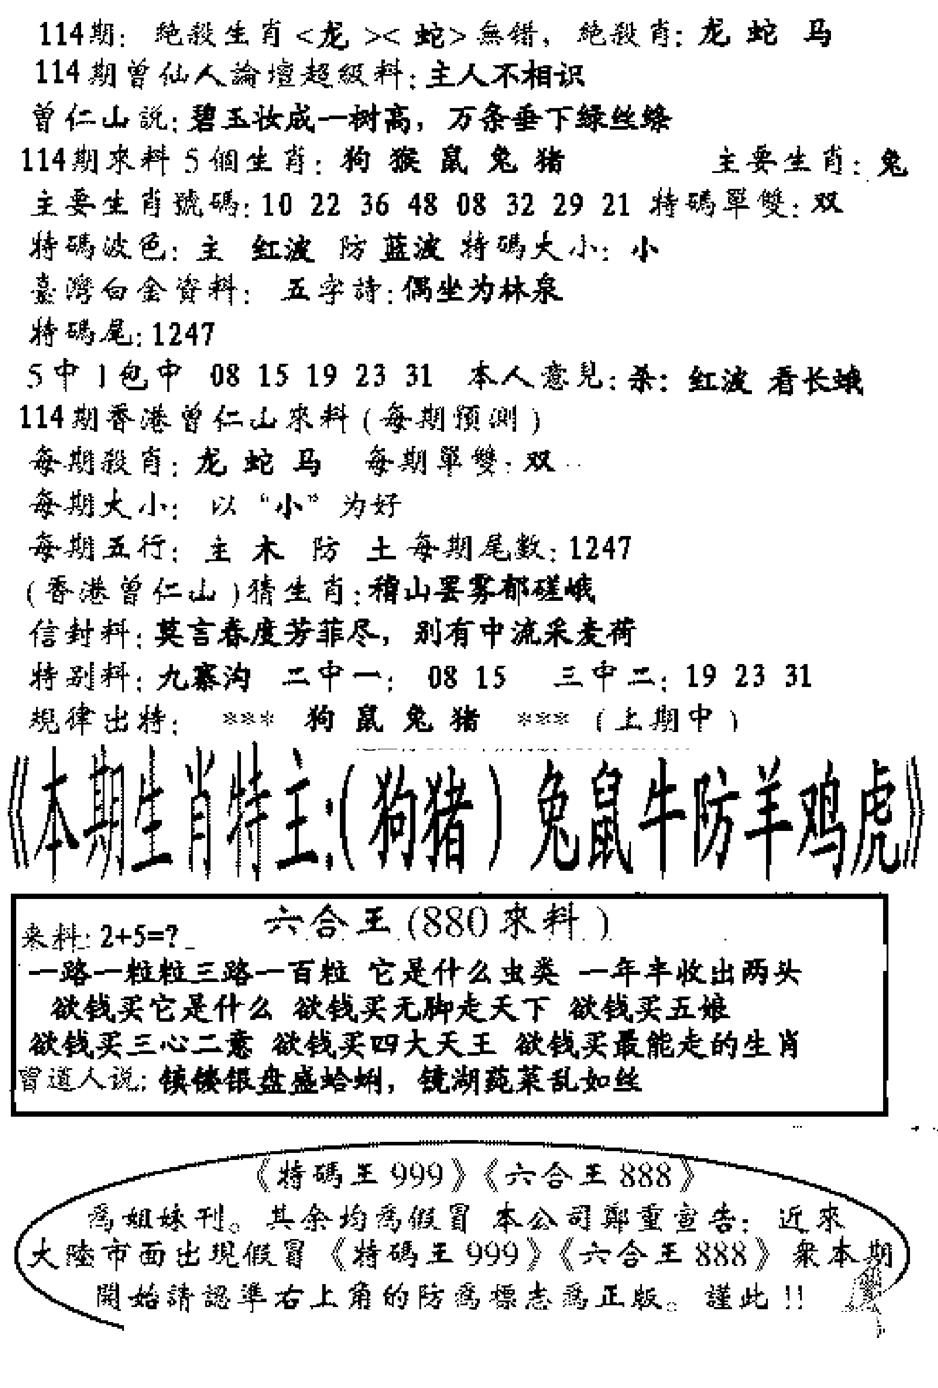 114期: 絶殺生肖<龙><蛇>無错, 絶殺肖: 龙 蛇 马
114期曾仙人論壇超級料:主人不相识
曾仁山説:碧玉妆成一树高，万条垂下绿丝绦
114期來料 5個生肖: 狗 猴 鼠 兔 猪 主要生肖: 兔
主要生肖號碼:10 22 36 48 08 32 29 21 特碼單雙:双
特碼波色: 主 红波 防 蓝波 特碼大小: 小
臺灣白金資料: 五字詩:偶坐为林泉
特碼尾:1247
5中1包中 08 15 19 23 31 本人意見:杀: 红波 看长蛾
114期香港曾仁山來料(每期預測)
每期殺肖: 龙 蛇 马 每期單雙:双
每期大小: 以“小”为好
每期五行: 主 木 防 土 每期尾數:1247
(香港曾仁山)猜生肖:稽山罢雾郁磋峨
信封料:莫言春度芳菲尽，别有中流采麦荷
特别料:九寨沟 二中一: 08 15 三中二: 19 23 31
規律出特: *** 狗 鼠 兔 猪 *** (上期中)
《本期生肖特主:(狗猪)兔鼠牛防羊鸡虎》
六合王(880來料)
来料:2+5=?
一路一粒粒三路一百粒 它是什么虫类 一年丰收出两头
欲钱买它是什么 欲钱买无脚走天下 欲钱买五娘
欲钱买三心二意 欲钱买四大天王 欲钱买最能走的生肖
曾道人说:镇楼银盘盛蛤蜊，镜湖莼菜乱如丝
《特碼王999》《六合王888》
爲姐妹刊。其余均爲假冒 本公司鄭重宣告: 近來
大陸市面出現假冒《特碼王999》《六合王888》衆本期
開始請認準右上角的防爲標志爲正版。謹此!!